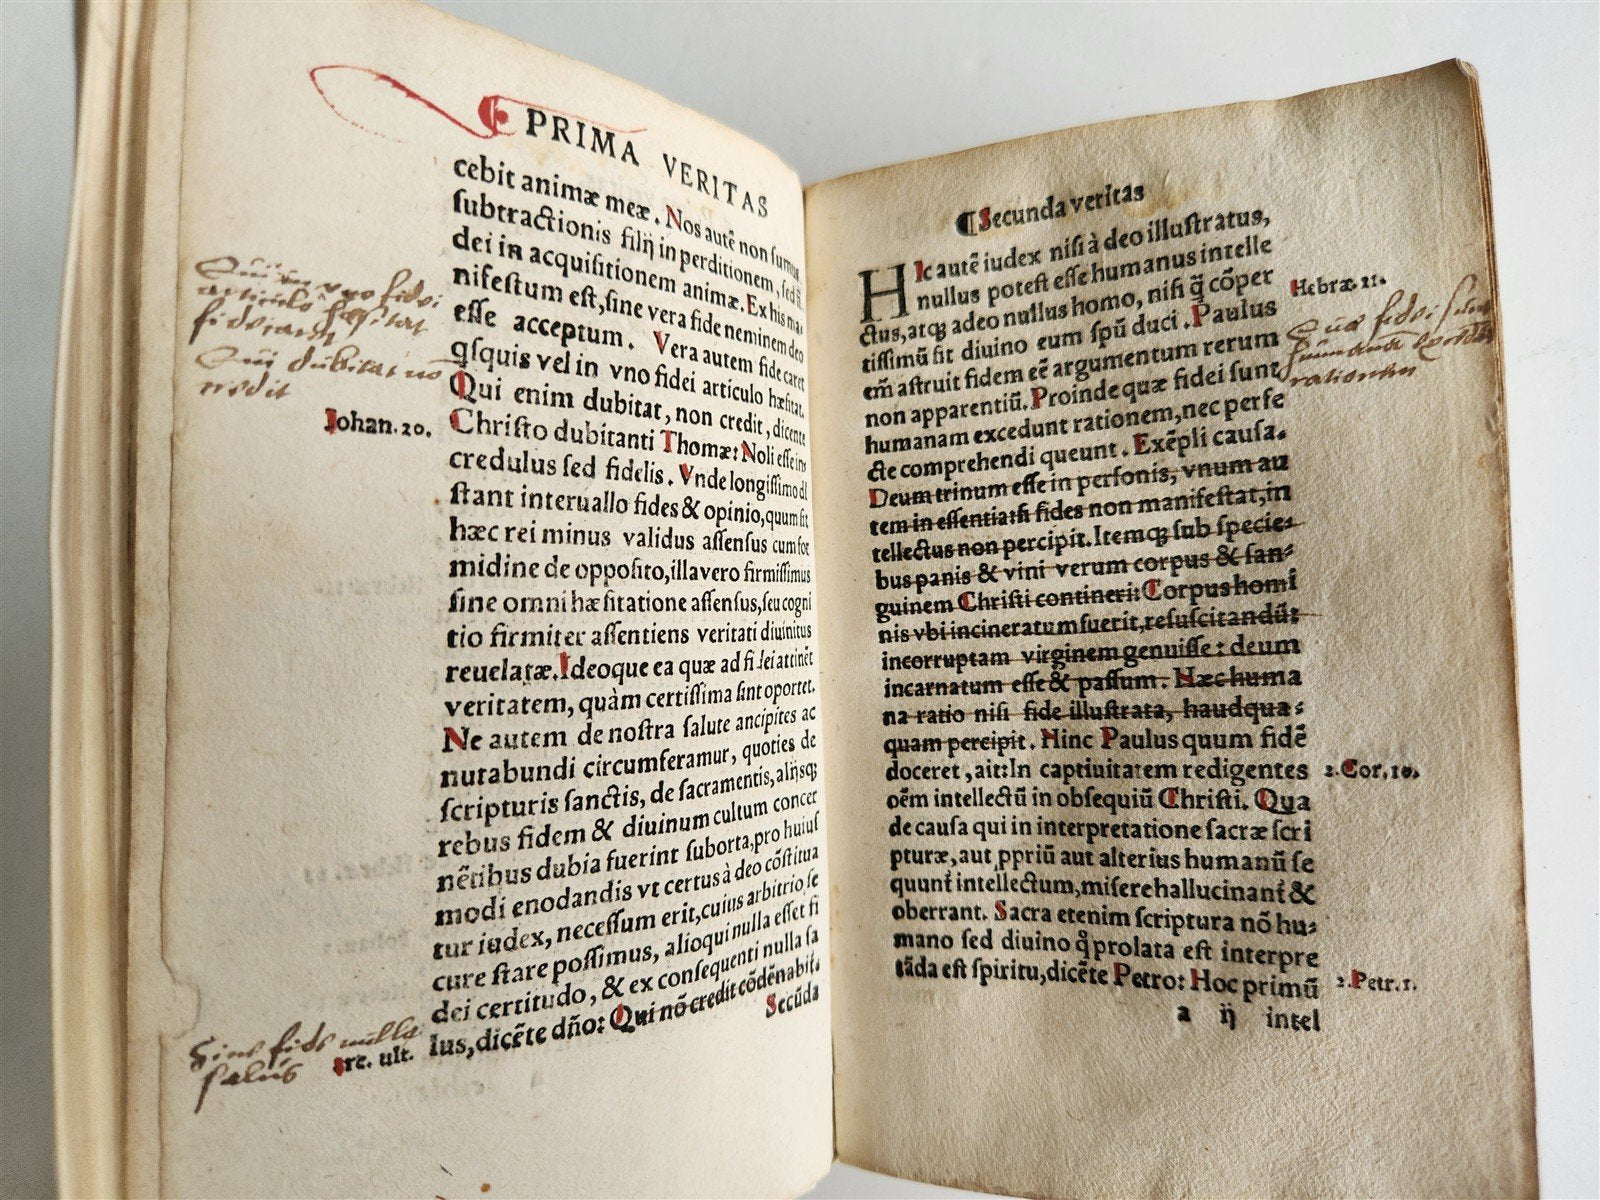 PRIMA VERITAS
cebit animæ meæ. Nos autē non sumus
subtractionis filij in perditionem, sed fi
dei in acquisitionem animæ. Ex his ma
nifestum est, sine vera fide neminem deo
esse acceptum. Vera autem fide caret
qsquis vel in vno fidei articulo hæsitat.
Qui enim dubitat, non credit, dicente
Christo dubitanti Thomæ: Noli esse in
credulus sed fidelis. Vnde longissimo di
stant interuallo fides & opinio, quum sit
hæc rei minus validus assensus cum for
midine de opposito, illa vero firmissimus
sine omni hæsitatione assensus, seu cogni
tio firmiter assentiens veritati diuinitus
reuelatæ. Ideoque ea quæ ad fidei attinēt
veritatem, quàm certissima sint oportet.
Ne autem de nostra salute ancipites ac
nutabundi circumferamur, quoties de
scripturis sanctis, de sacramentis, alijsqꝫ
rebus fidem & diuinum cultum concer
nētibus dubia fuerint suborta, pro huius
modi enodandis vt certus à deo cōstitua
tur iudex, necessum erit, cuius arbitrio se
cure stare possimus, alioqui nulla esset fi
dei certitudo, & ex consequenti nulla sa
lus, dicēte dño: Qui nō credit cōdēnabit.
Secūda
Qui in vno fidei
articulo hæsitat
Qui dubitat nō
credit
Johan. 20.
Sine fide nulla
salus
arc. ult.
¶Secunda veritas
HIc autē iudex nisi à deo illustratus,
nullus potest esse humanus intelle
ctus, atqꝫ adeo nullus homo, nisi q̄ cōper
tissimū sit diuino eum spū duci. Paulus
em̄ astruit fidem eē argumentum rerum
non apparentiū. Proinde quæ fidei sunt
humanam excedunt rationem, nec perfe
cte comprehendi queunt. Exēpli causa.
Deum trinum esse in personis, vnum au
tem in essentia: si fides non manifestat, in
tellectus non percipit. Itemqꝫ sub specie-
bus panis & vini verum corpus & san-
guinem Christi contineri: Corpus homi
nis vbi incineratum fuerit, resuscitandū:
incorruptam virginem genuisse: deum
incarnatum esse & passum. Hæc huma
na ratio nisi fide illustrata, haudqua-
quam percipit. Hinc Paulus quum fidē
doceret, ait: In captiuitatem redigentes
oēm intellectū in obsequiū Christi. Qua
de causa qui in interpretatione sacræ scri
pturæ, aut ꝓpriū aut alterius humanū se
quunt̄ intellectum, misere hallucinant̄ &
oberrant. Sacra etenim scriptura nō hu-
mano sed diuino q̄ prolata est interpre
tāda est spiritu, dicēte Petro: Hoc primū
a ij intel
Hebræ. 11.
Quæ fidei sunt
humanā excedūt
rationem
2. Cor. 10.
2. Petr. 1.